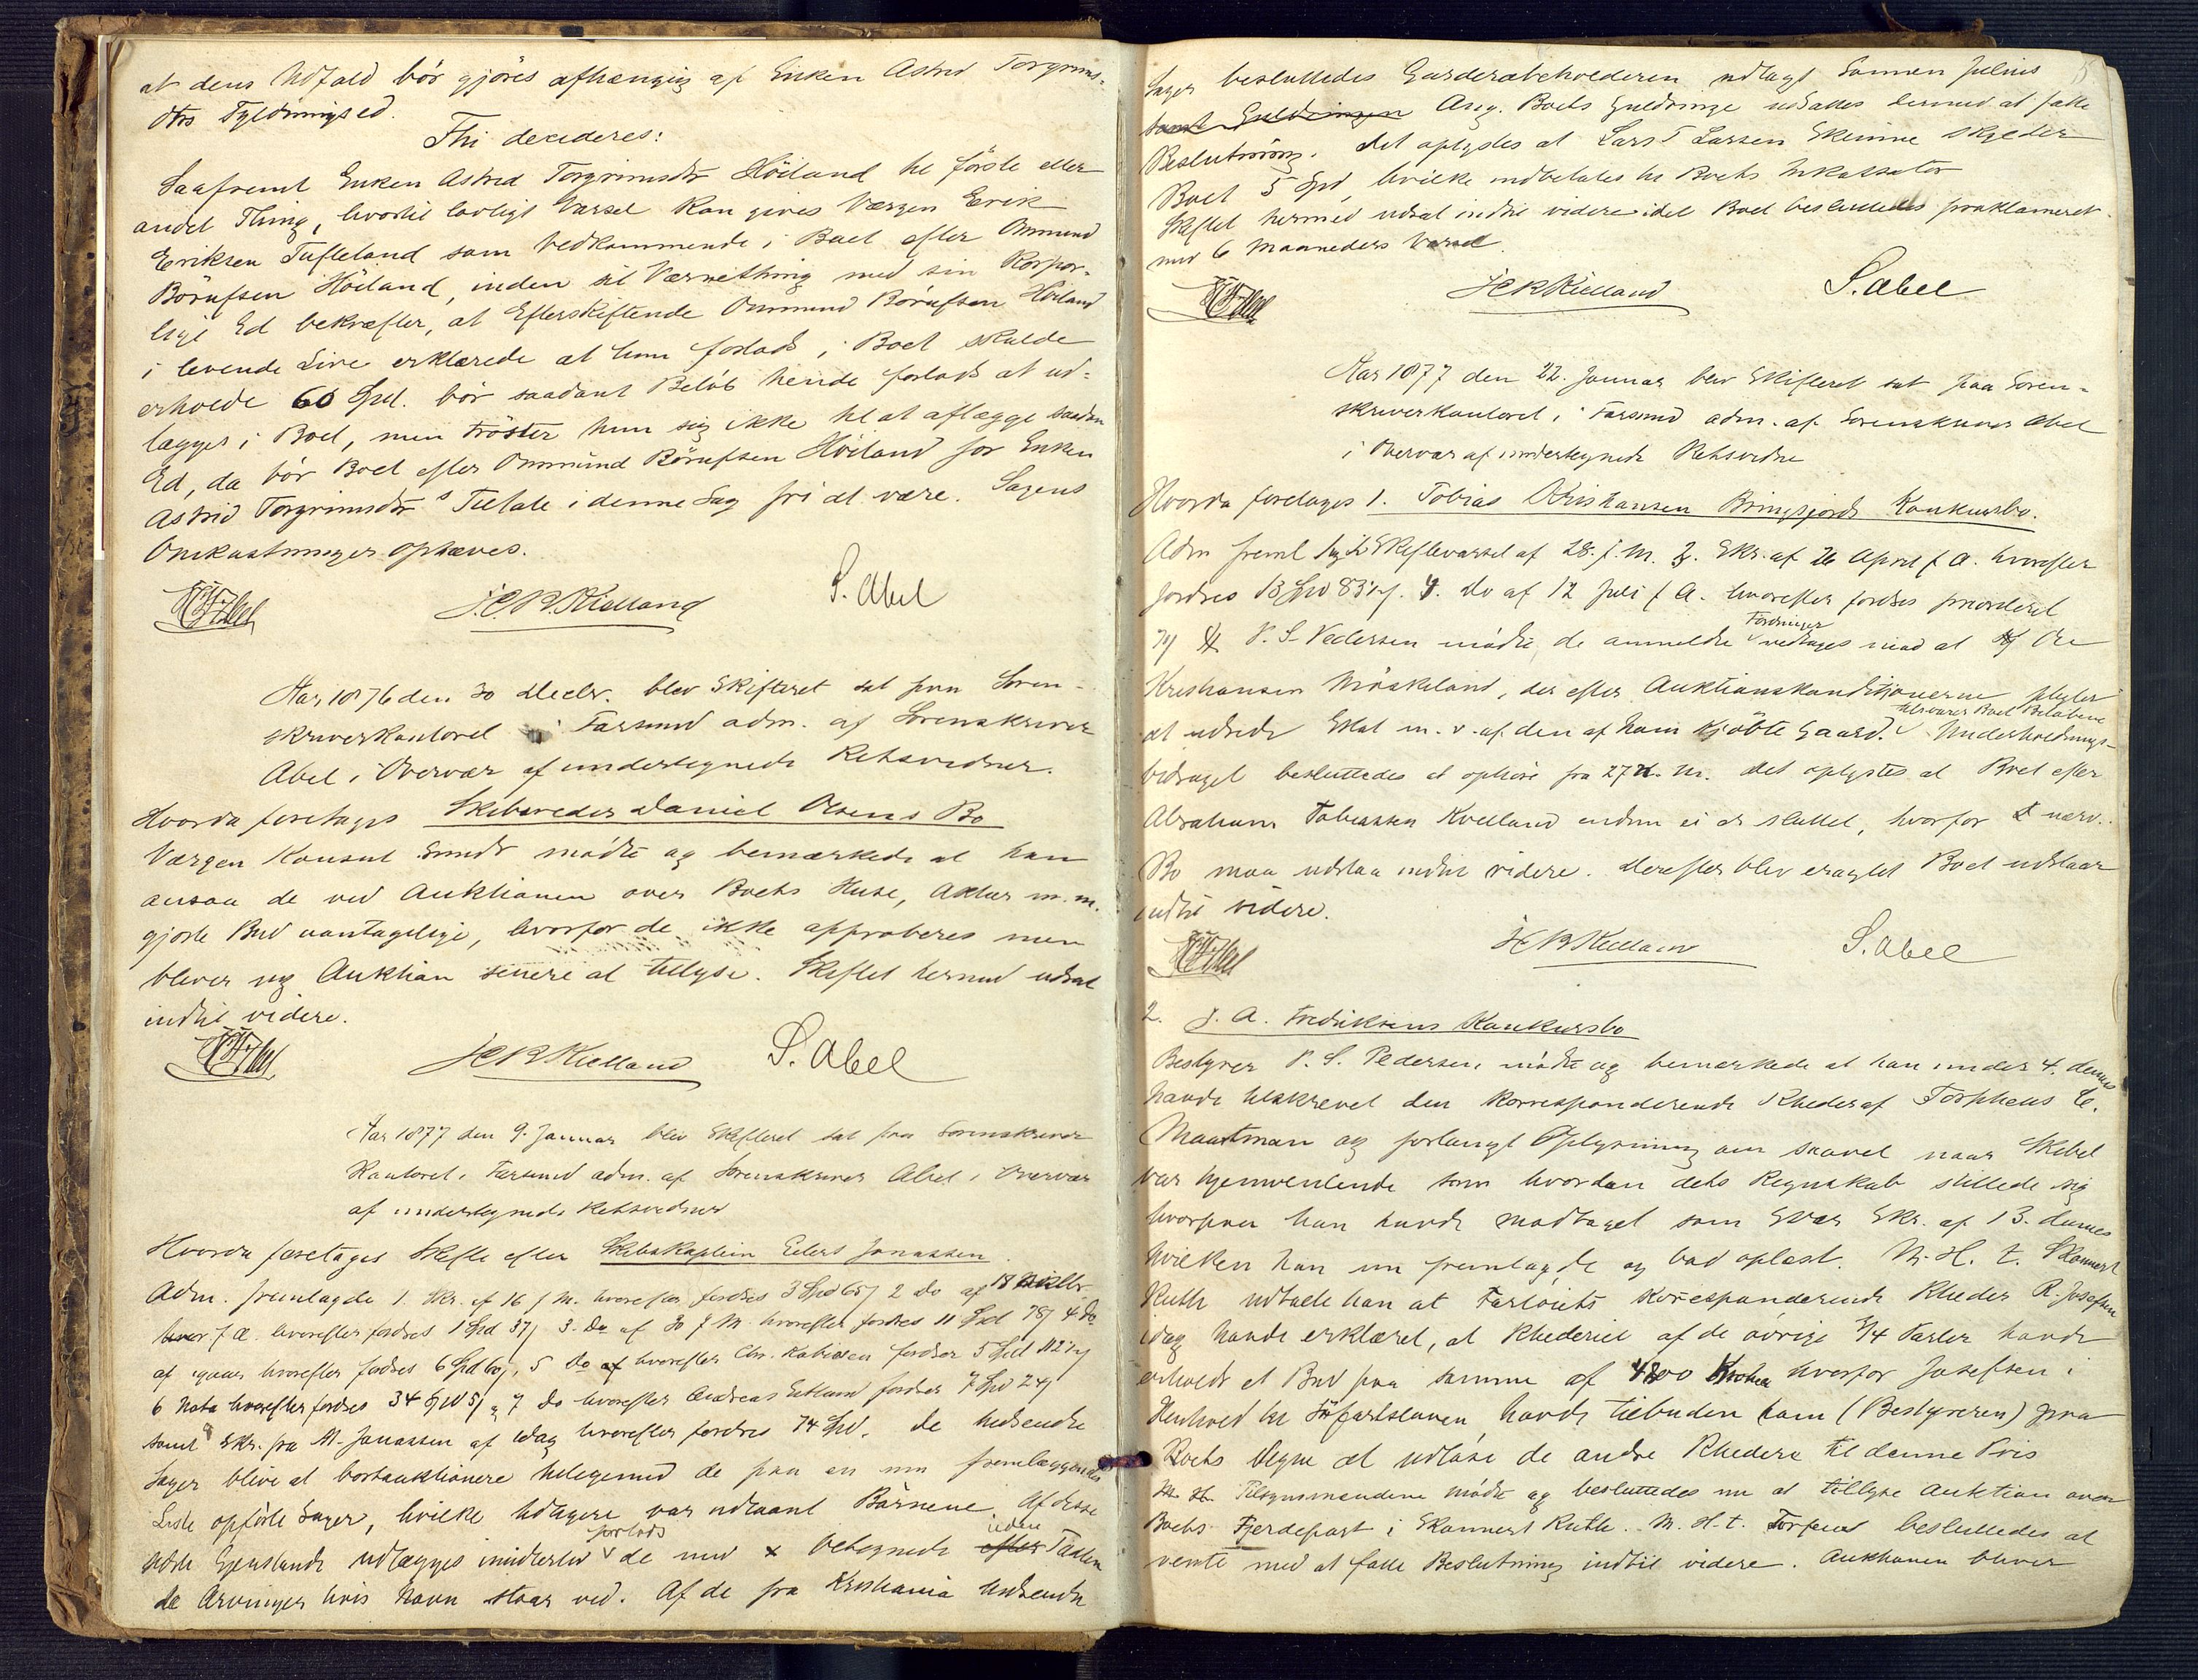 at dens Udfald bör gjöres afhængig af Enken Astrid Torgrims-
dtrs Fyldningsed.
Thi decideres:
Saafremt Enken Astrid Torgrimsdtr Höiland til förste eller
andet Thing, hvortil lovligt Varsel kan gives Værgen Erik
Eriksen Tufteland som Vedkommende i Boet efter Ommund
Börufsen Höiland, inden sit Værnething med sin Korpor-
lige Ed bekræfter, at Efterskiftende Ommund Börufsen Höiland
i levende Live erklærede at hun forlods i Boet skulde
erholde 60 Spd. bör saadant Belöb hende forlods at ud-
lægges i Boet, men tröster hun sig ikke til at aflægge saadan
Ed, da bör Boet efter Ommund Börufsen Höiland for Enken
Astrid Torgrimsdtr's Tiltale i denne Sag fri at være. Sagens
Omkostninger ophæves.
Abel J.C.B. Kielland S. Abel
Aar 1876 den 30 Decbr. blev Skifteret sat paa Soren-
skriverkontoret i Farsund adm. af Sorenskriver
Abel i Overvær af undertegnede Retsvidner.
Hvorda foretages Skibsreder Daniel Olsens Bo
Værgen Konsul Sundt mödte og bemærkede at han
ansaa de ved Auktionen over Boets Huse, Aktier m.m.
gjorte Bud uantagelige, hvorfor de ikke approberes men
bliver ny Auktion senere at tillyse. Skiftet hermed udsat
indtil videre.
Abel JCB Kielland S. Abel
Aar 1877 den 9. Januar blev Skifteret sat paa Sorenskriver
Kontoret i Farsund adm. af Sorenskriver Abel i Overvær
af undertegnede Retsvidner
Hvorda foretages Skifte efter Skibskaptein Eilert Jonassen.
Adm. fremlagde 1. Skr. af 16 f. M. hvorefter fordres 3 Spd 65 2 Do af 18
f. A. hvorefter fordres 1 Spd 37 3. Do af 30 f M. hvorefter fordres 11 Spd 78 4 Do
af igaar hvorefter fordres 6 Spd 60, 5 Do af hvorefter Chr. fordrer 5 Spd
6 Nota hvorefter fordres 34 Spd 5, 7 Do hvorefter Andreas fordrer 7 Spd 24
samt 8 Skr. fra M. Jonassen af idag hvorefter fordres 74 Spd. De hidsendte
Sager blive at bortauktionere tilligemed de paa en nu fremlæggendes
Liste opförte Sager, hvilke tidligere var udlaant Börnene. Af disse
sidste Gjenstande udlægges imidlertid forlods de med x betegnede efter uden Taxten
de Arvinger hvis Navn staar ved. Af de fra Kristiania hidsendte
Sager besluttedes Garderobeholderen udlagt Sönnen Julius
samt Guldringen Ang. Boets Guldringe udsattes dermed at fatte
Beslutning. Det oplystes at Lars T Larsen Skeime skylder
Boet 5 Spd, hvilke indbetales til Boets Inkassator
Skiftet hermed udsat indtil videre idet Boet besluttedes proklameret
med 6 Maaneders Varsel.
Abel JCB Kielland S. Abel
Aar 1877 den 22. Januar blev Skifteret sat paa Soren-
skriverkontoret i Farsund adm. af Sorenskriver Abel
i Overvær af undertegnede Retsvidne
Hvorda foretages 1. Tobias Kristiansen Bringsjords Konkursbo.
Adm freml 1 og 2 Skiftevarsel af 28. f. M. 3. Skr. af 26 April f A. hvorefter
fordres 13 Spd 83. 4. Do af 12 Juli f A. hvorefter fordres prioriteret
P. S. Pedersen mödte de anmeldte Fordringer vedtages mod at Ole
Kristiansen Möskeland, der efter Auktionskonditjonerne pligter
at udrede Skat m. v. af den af ham kjöbte Gaard. tilsvarer Boet Belöbene Underholdnings-
bidraget besluttedes at ophöre fra 27 d. M. Det oplystes at Boet efter
Abraham Tobiassen Kvelland endnu ei er sluttet, hvorfor nærv.
Bo maa udstaa indtil videre. Derefter blev eragtet Boet udstaar
indtil videre.
Abel JCB Kielland S. Abel
2. J. A. Fredriksens Konkursbo
Bestyrer P. S. Pedersen, mödte og bemærkede at han under 4. dennes
havde tilskrevet den korresponderende Rheder af Torpheus C.
Maartman og forlangt Oplysning om saavel naar Skibet
var hjemventende som hvordan dets Regnskab stillede sig
hvorpaa han havde modtaget som Svar Skr. af 13. dennes
hvilken han nu fremlagde og bad oplæst. M. H. t. Skonnert
Ruth udtalte han at Fartöiets korresponderende Rheder R. Josefsen
idag havde erklæret, at Rhederiet af de övrige 3/4 Parter havde
erholdt et Bud paa samme af 4800 Kroner hvorfor Josefsen i
Henhold til Söfartsloven havde tilbuden ham (Bestyreren) paa
Boets Vegne at udlöse de andre Rhedere til denne Pris
Tilsynsmændene mödte og besluttedes nu at tillyse Auktion over
Boets Fjerdepart i Skonnert Ruth. M. H. t. Torfeus besluttedes at
vente med at fatte Beslutning indtil videre. Auktionen bliver